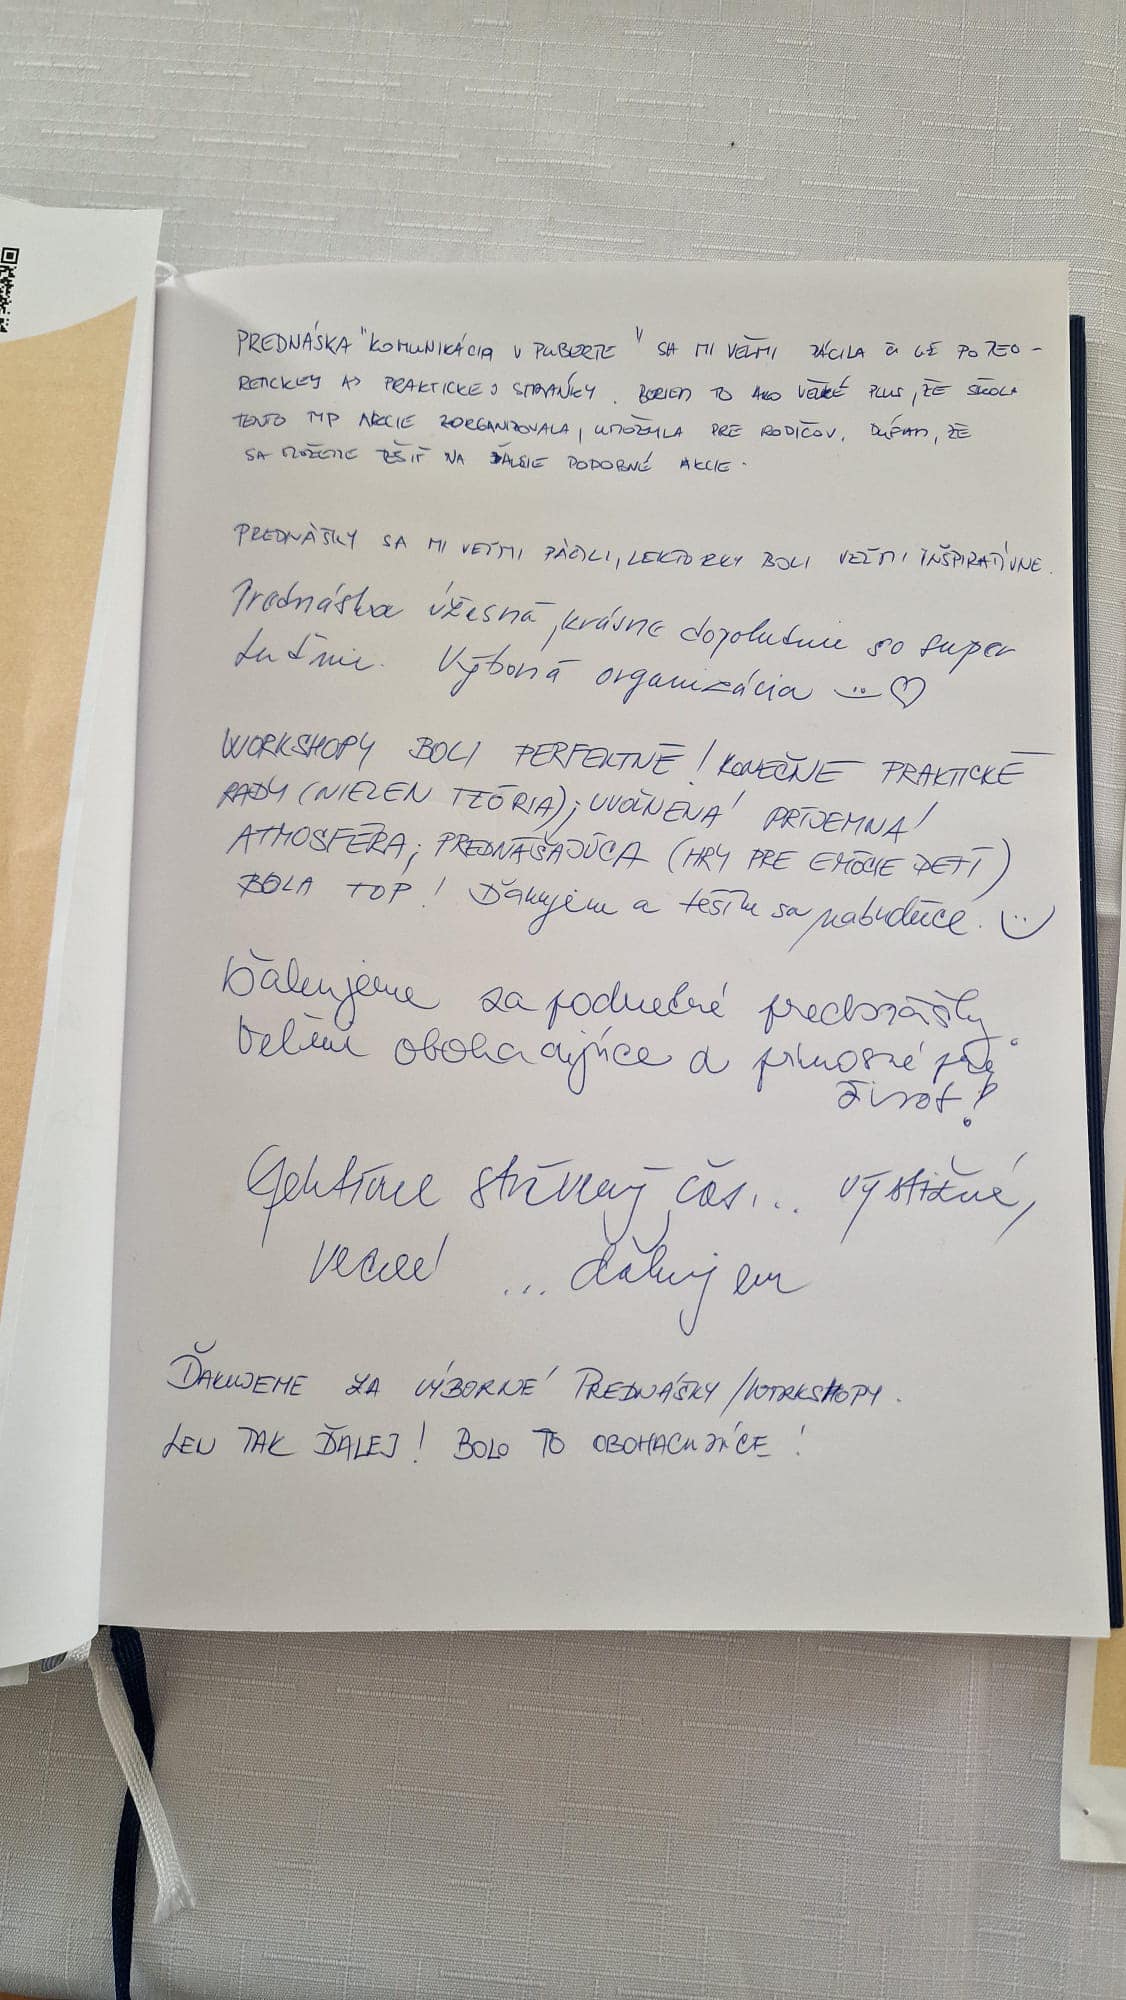 PREDNÁŠKA "KOMUNIKÁCIA V PUBERTE" SA MI VEĽMI PÁČILA ČI UŽ PO TEO-
RETICKEJ AJ PRAKTICKEJ STRÁNKY. BERIEM TO AKO VEĽKÉ PLUS, ŽE ŠKOLA
TENTO TYP AKCIE ZORGANIZOVALA, UMOŽNILA PRE RODIČOV. DÚFAM, ŽE
SA MÔŽEME TEŠIŤ NA ĎALŠIE PODOBNÉ AKCIE.
PREDNÁŠKY SA MI VEĽMI PÁČILI, LEKTORKY BOLI VEĽMI INŠPIRATÍVNE.
Prednáška úžasná, krásne doplnenie so super
Výborná organizácia
WORKSHOPY BOLI PERFEKTNÉ! KONEČNE PRAKTICKÉ
RADY (NIELEN TEÓRIA); UVOĽNENÁ PRÍJEMNÁ
ATMOSFÉRA; PREDNÁŠAJÚCA (HRY PRE EMÓCIE DETÍ)
BOLA TOP! Ďakujem a teším sa nabudúce.
Ďakujeme za podnetné prednášky
Veľmi obohacujúce a prínosné pre
život!
Efektívne strávený čas... výstižné,
vecné ... ďakujem
ĎAKUJEME ZA VÝBORNÉ PREDNÁŠKY/WORKSHOPY.
LEN TAK ĎALEJ! BOLO TO OBOHACUJÚCE!